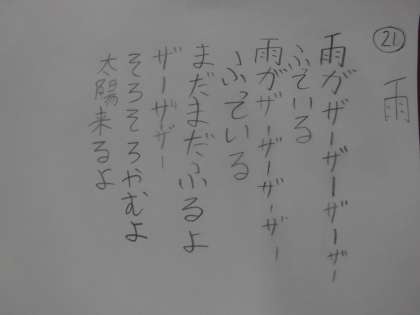 ㉑
雨
雨がザーザーザーザー
ふている
雨がザーザーザーザー
ふっている
まだまだふるよ
ザーザザー
そろそろやむよ
太陽来るよ